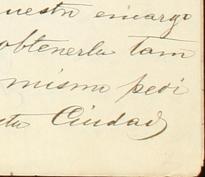 uestro encargo
obtenerla tam
mismo pedi
sta Ciudad